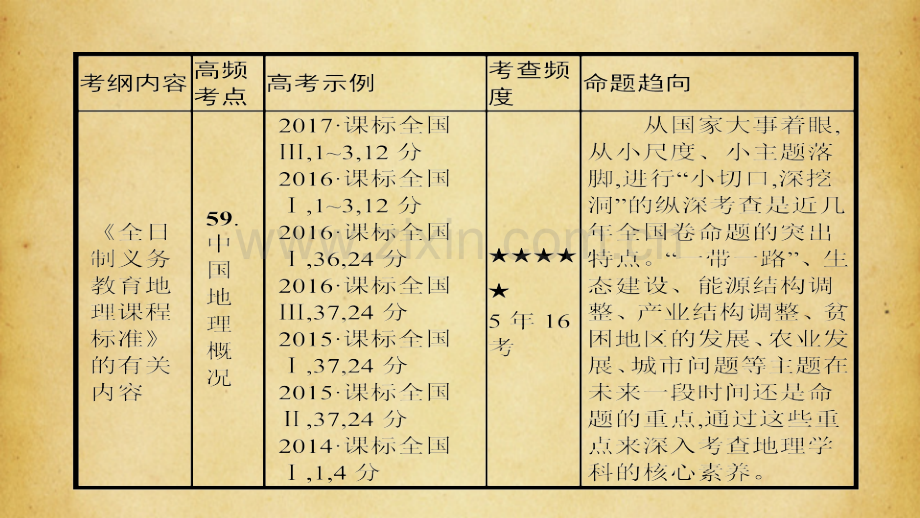 考纲内容
高频
考点
高考示例
考查频
度
命题趋向
《全日
制义务
教育地
理课程
标准》
的有关
内容
59.
中
国
地
理
概
况
2017·课标全国
Ⅲ,1~3,12 分
2016·课标全国
Ⅰ,1~3,12 分
2016·课标全国
Ⅰ,36,24分
2016·课标全国
Ⅲ,37,24 分
2015·课标全国
Ⅰ,37,24 分
2015·课标全国
Ⅱ,37,24 分
2014·课标全国
Ⅰ,1,4 分
★★★★
★
5 年 16
考
从国家大事着眼,
从小尺度、小主题落
脚,进行“小切口,深挖
洞”的纵深考查是近几
年全国卷命题的突出
特点。“一带一路”、生
态建设、能源结构调
整、产业结构调整、贫
困地区的发展、农业发
展、城市问题等主题在
未来一段时间还是命
题的重点,通过这些重
点来深入考查地理学
科的核心素养。
www.zixin.com.cn